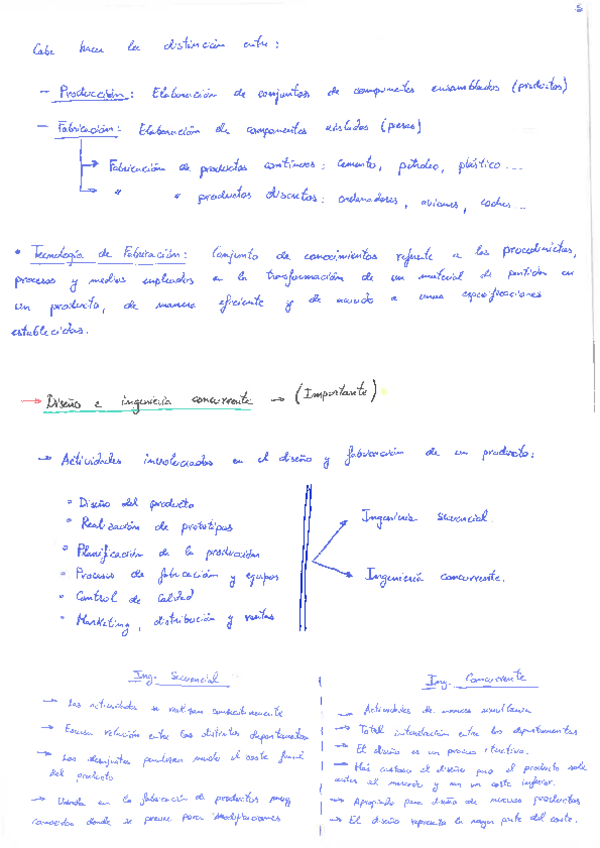 5
Cabe hacer la distinción entre:
- Producción: Elaboración de conjuntos de componentes ensamblados (productos)
- Fabricación: Elaboración de componentes aislados (piezas)
Fabricación de productos continuos: cemento, petróleo, plástico ...
" " productos discretos: ordenadores, aviones, coches ...
• Tecnología de Fabricación: Conjunto de conocimientos referente a los procedimientos,
procesos y medios empleados en la transformación de un material de partida en
un producto, de manera eficiente y de acuerdo a unas especificaciones
establecidas.
→ Diseño e ingeniería concurrente → (Importante)
→ Actividades involucradas en el diseño y fabricación de un producto:
• Diseño del producto
• Realización de prototipos
• Planificación de la producción
• Procesos de fabricación y equipos
• Control de Calidad
• Marketing, distribución y ventas
Ingeniería secuencial
Ingeniería concurrente.
Ing. Secuencial
→ Las actividades se realizan consecutivamente
→ Escasa relación entre los distintos departamentos
→ Los desajustes penalizan mucho el coste final
del producto
→ Usada en la fabricación de productos muy
conocidos donde se prevee pocas modificaciones
Ing. Concurrente
→ Actividades de manera simultanea
→ Total interacción entre los departamentos
→ El diseño es un proceso iterativo.
→ Más costoso el diseño pero el producto sale
antes al mercado y con un coste inferior.
→ Apropiado para diseño de nuevos productos
→ El diseño representa la mayor parte del coste.